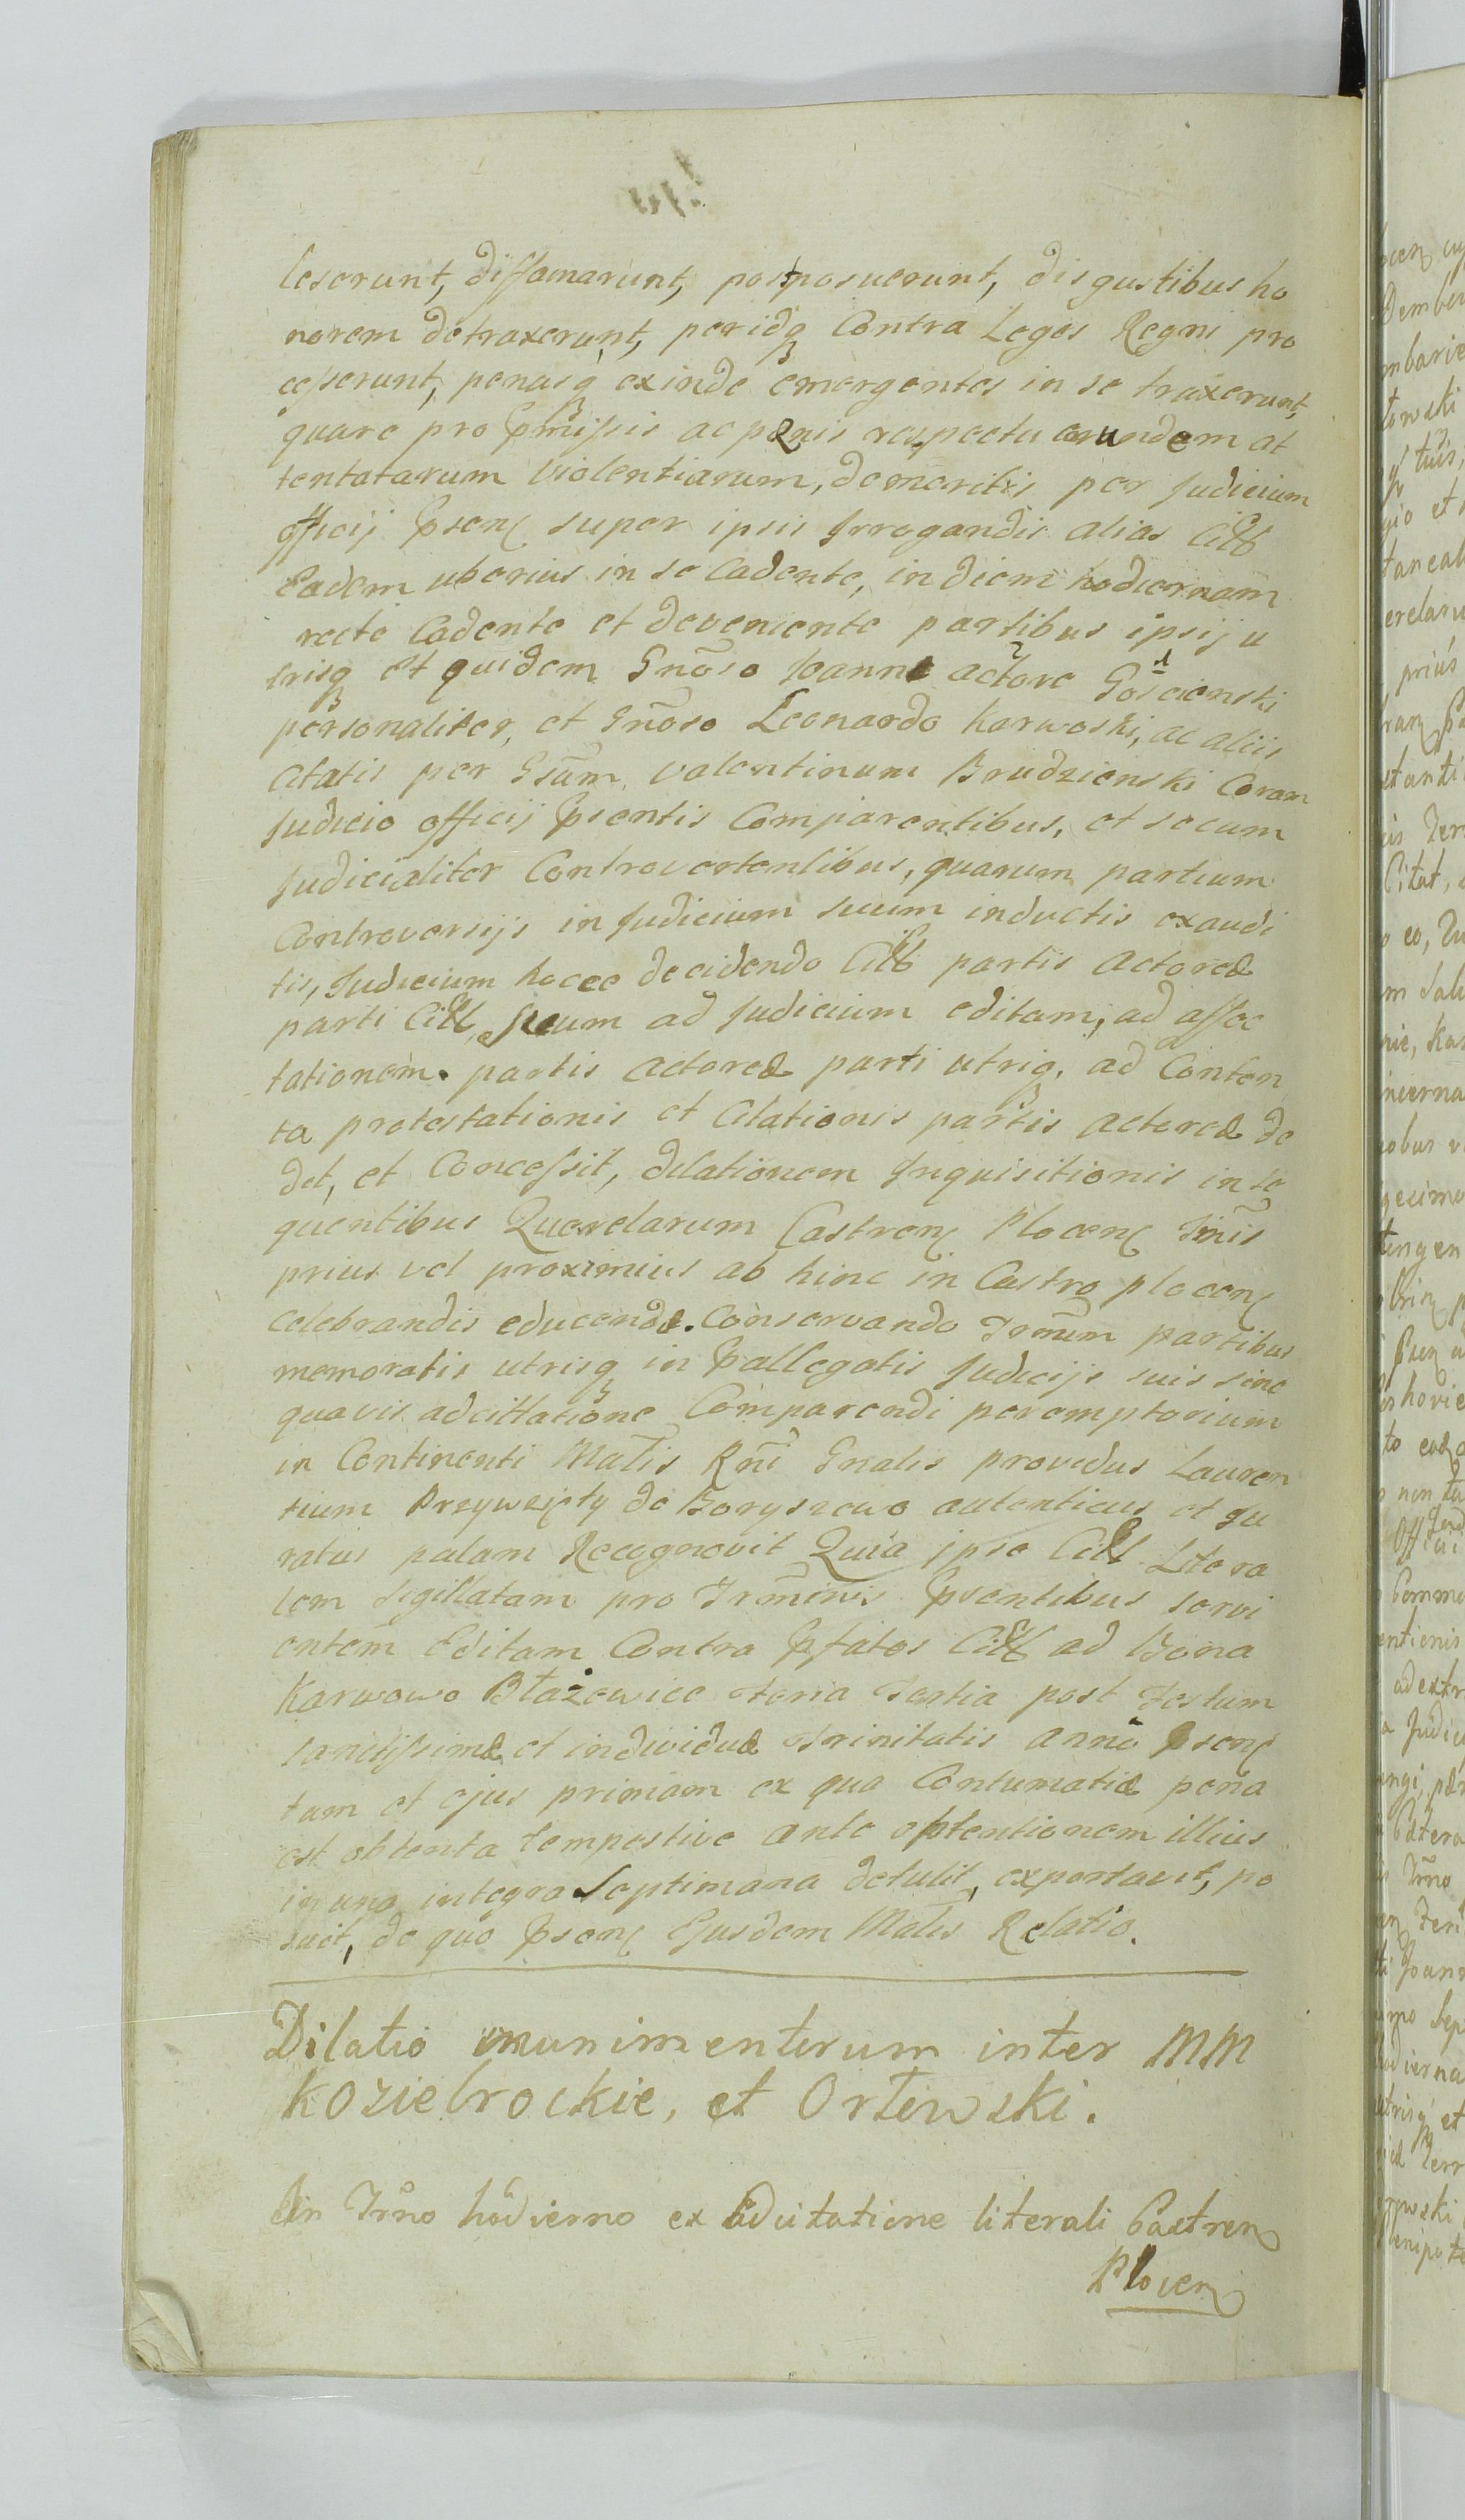 leserunt, diffamarunt, postposuerunt, disgustibus ho
norem detraxerunt, peridq Contra Leges Regni pro
cesserunt, penasq exinde emergentes in se traxerunt,
quare pro pmissis ac pænis respectu earundem at
tentatarum violentiarum, demeritis per Judicium
officij psen super ipsis Irrogandis alias Citt
Eadem uberius in se Cadente, in diem hodiernam
recte Cadente et deveniente partibus ipsis u
trisq et quidem Gnoso Joanne actore Goscienski
personaliter, et Gnoso Leonardo Karwoski, ac aliis
Citatis per Gsum valentinum Brudzienski Coram
Judicio officij psentis Comparentibus, et secum
Judicialiter Controvertentibus, quarum partium
Controversijs in Judicium suum inductis exaudi
tis, Judicium hocce decidendo Citt partis actoreæ
parti Citt, suum ad Judicium editam, ad affec
tationem partis actoreæ parti utriq, ad Conten
ta protestationis et Citationis partis actoreæ de
det, et Concessit, dilationem Inquisitionis in se
quentibus Querelarum Castren Plocen Trnis
prius vel proximius ab hinc in Castro plocen
celebrandis educendæ. Conservando Trmum partibus
memoratis utrisq in pallegatis Judicijs suis sine
quavis adcittatione Comparendi peremptorium
in Continenti Matis Rni Gnalis providus Lauren
tium Przywzięty de Boryszewo autenticus et Ju
ratus palam Recognovit Quia ipse Citt Litera
lem sigillatam pro Trminis psentibus servi
entem Editam Contra pfatos Citt ad Bona
Karwowo Błażewice feria Tertia post Festum
sanctissimæ et individuæ Trinitatis anno psen
tam et ejus primam ex qua Contumatiæ pena
est obtenta tempestive ante obtentionem illius
in una integra Septimana detulit, exportavit, po
suit, de quo psen Ejusdem Matis Relatio.
Dilatio munimentorum inter MM
Koziebrockie, et Ortewski.
In Trno hodierno ex adcitatione literali Castren
Plocen